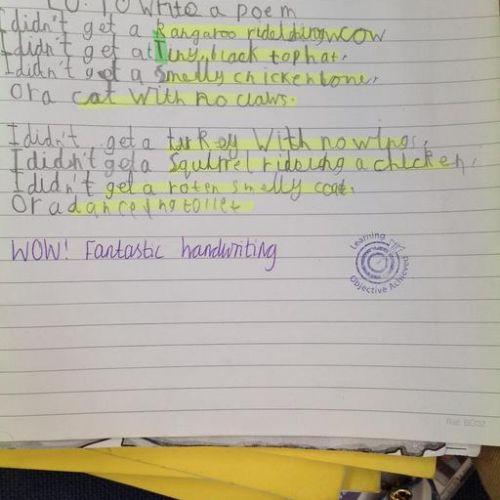 LO: To write a poem
I didn't get a kangaroo rideding wcow
I didn't get a Tiny black top hat.
I didn't get a smelly chicken bone.
Or a cat with no claws.
I didn't get a turkey with no wings,
I didn't get a squirrel ridsing a chicken.
I didn't get a roten smelly coat.
Or a danceying toilet
WOW! Fantastic handwriting
Learning Objective Achieved